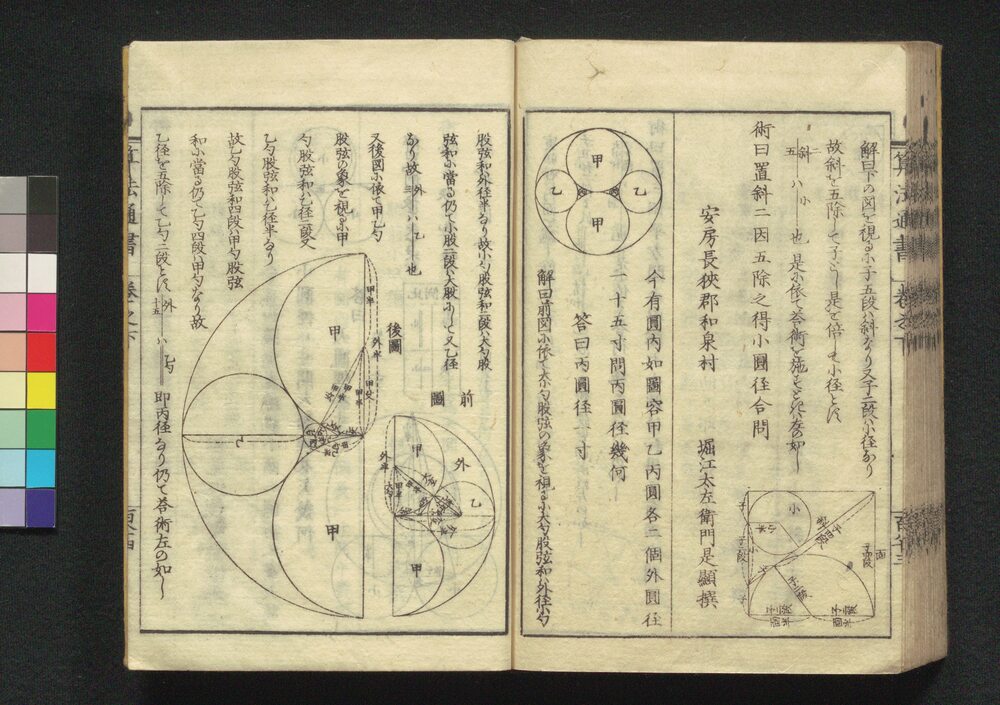 解曰下の図を視るに子五段ハ斜なり又子二段ハ小径なり
故斜を五除して子とし是を倍して小径とす
也是に依て答術を施すこと左の如し
術曰置斜二因五除之得小圓徑合問
安房長狹郡和泉村
堀江太左衛門是顯撰
今有圓内如圖容甲乙丙圓各二個外圓徑
一十五寸問丙圓徑幾何
答曰丙圓徑一寸
解曰前図に依て大勾股弦の象を視るに大勾股弦和ハ外径小勾
股弦和外径半なり故小勾股弦和二段ハ大勾股
弦和に當る仍て小股二段ハ大股にして又乙径
なり故
也
又後図に依て甲乙勾
股弦の象を視るに甲
勾股弦和ハ乙径二段又
乙勾股弦和ハ乙径半なり
故乙勾股弦和四段ハ甲勾股弦
和に當る仍て乙勾四段ハ甲勾なり故
乙径を五除して乙勾二段とす
即丙径なり仍て答術左の如し
甲
甲
乙
乙
小
後圖
甲
甲
乙
外半
前圖
外
甲
乙
甲
外半
算法通書
巻之下
算法通書
巻之下